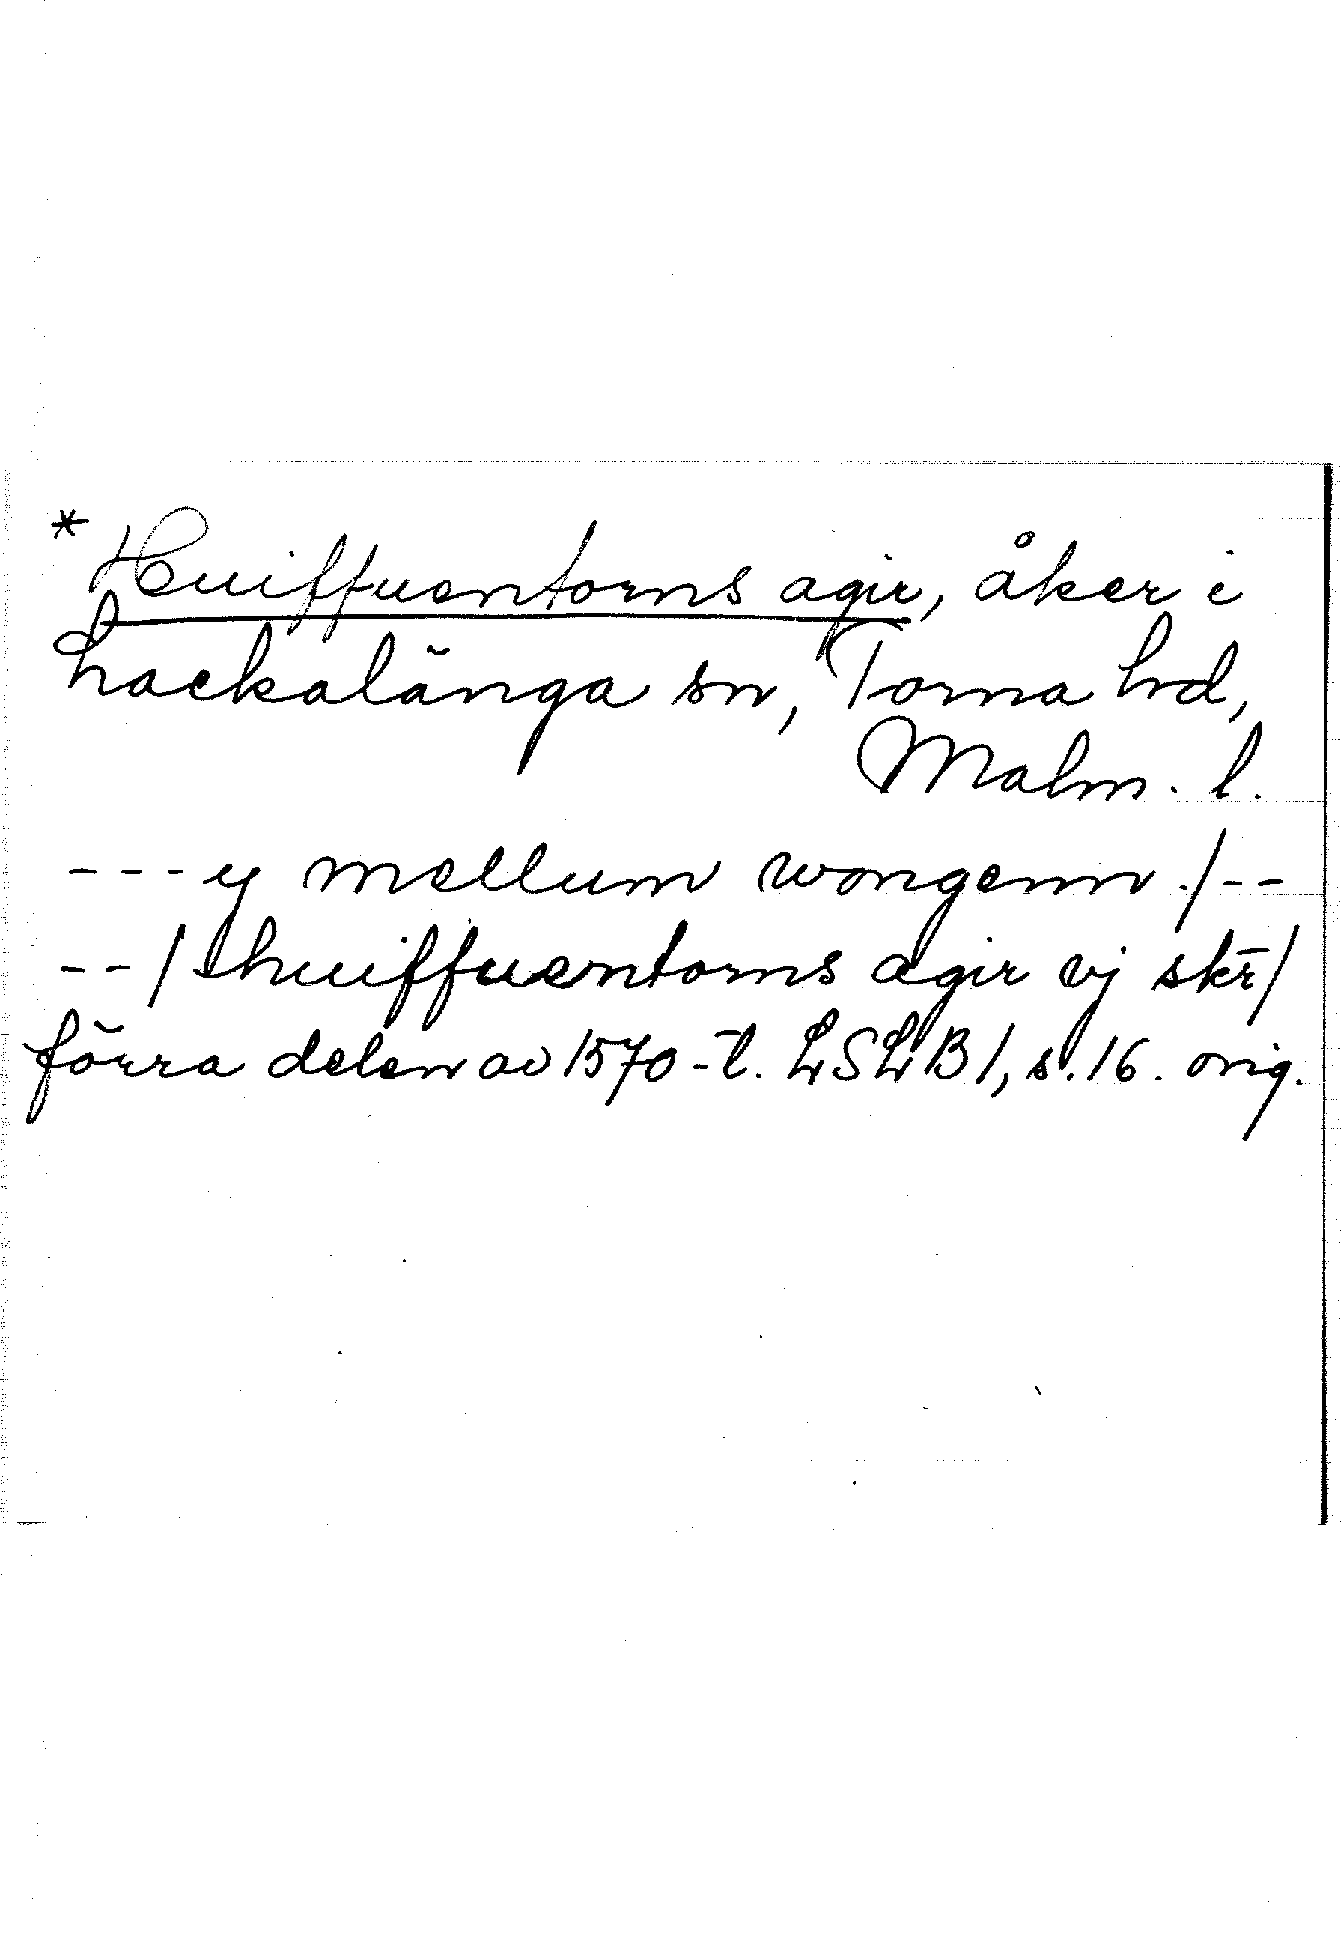 *Huiffuentorns agir, åker i
Hackalänga sn, Torna hd,
Malm. l.
---y mellum wongenn ./--
--/ huiffuentorns agir vj skr̄/
förra delen av 1570-t. LSLB 1, s. 16. orig.